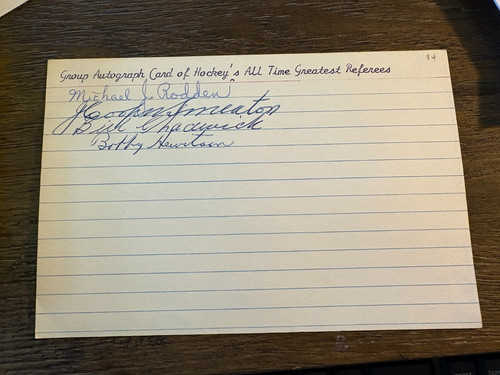 84
Group Autograph Card of Hockey's All Time Greatest Referees
Michael J. Rodden
J Cooper Smeaton
Bill Chadwick
Bobby Hewitson